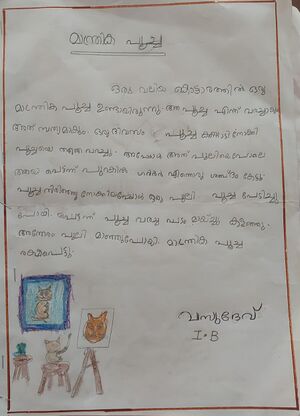 മാന്ത്രിക പൂച്ച
ഒരു വലിയ കൊട്ടാരത്തിൽ ഒരു
മാന്ത്രിക പൂച്ച ഉണ്ടായിരുന്നു. ആ പൂച്ച എന്ത് വരച്ചാലും
അത് സത്യമാകും. ഒരു ദിവസം പൂച്ച കണ്ണാടി നോക്കി
പൂച്ചയെ തന്നെ വരച്ചു. അപ്പോൾ അത് പുലിയെ പോലെ
പെട്ടന്ന് പുറകിൽ ഗർർർ എന്നൊരു ശബ്ദം കേട്ടു
പൂച്ച തിരിഞ്ഞു നോക്കിയപ്പോൾ ഒരു പുലി പൂച്ച പേടിച്ചു
പോയി. പെട്ടന്ന് പൂച്ച വരച്ച പടം മായ്ച്ചു കളഞ്ഞു.
അന്നേരം പുലി മാഞ്ഞുപോയി. മാന്ത്രിക പൂച്ച
രക്ഷപെട്ടു.
വസുദേവ്
I-B